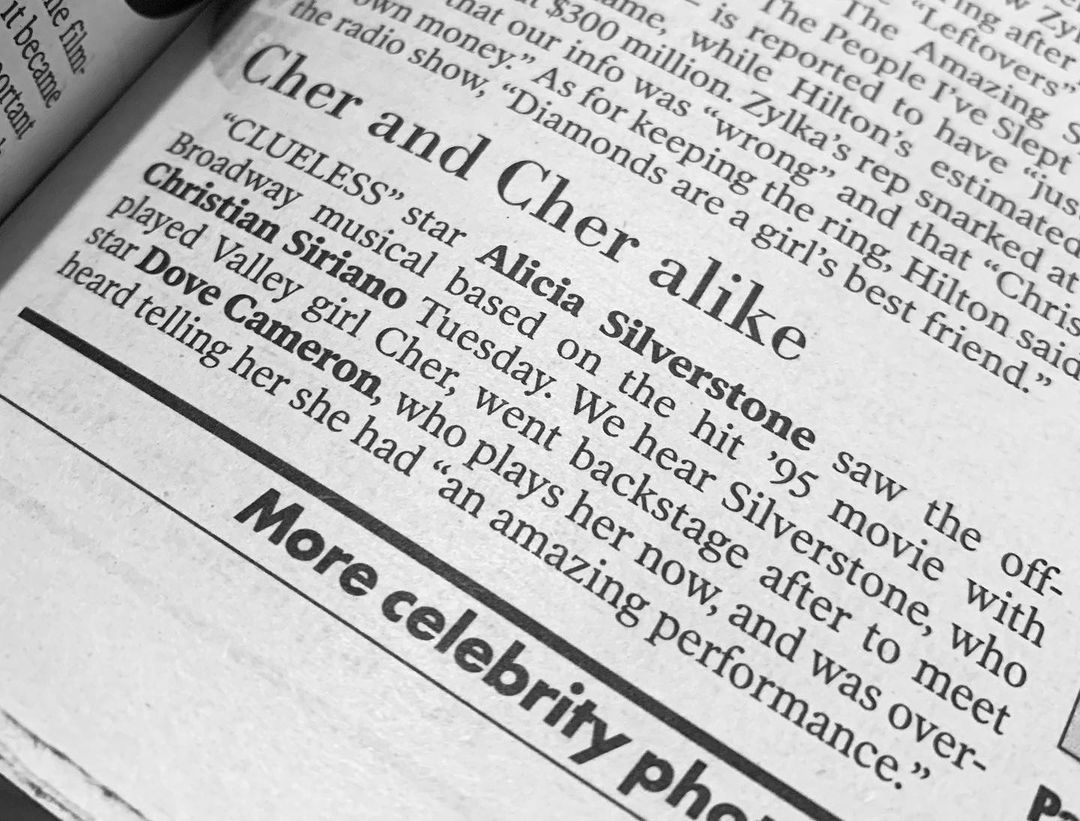 film-
it became
ring after
“Leftovers”
The Amazing
The People I’ve Slept
— is reported to have
while Hilton’s estimated
$300 million. Zylka’s rep snarked at
that our info was “wrong” and that “Chris
own money.” As for keeping the ring, Hilton said
the radio show, “Diamonds are a girl’s best friend.”
Cher and Cher alike
“CLUELESS” star Alicia Silverstone saw the off-
Broadway musical based on the hit ’95 movie with
Christian Siriano Tuesday. We hear Silverstone, who
played Valley girl Cher, went backstage after to meet
star Dove Cameron, who plays her now, and was over-
heard telling her she had “an amazing performance.”
More celebrity pho